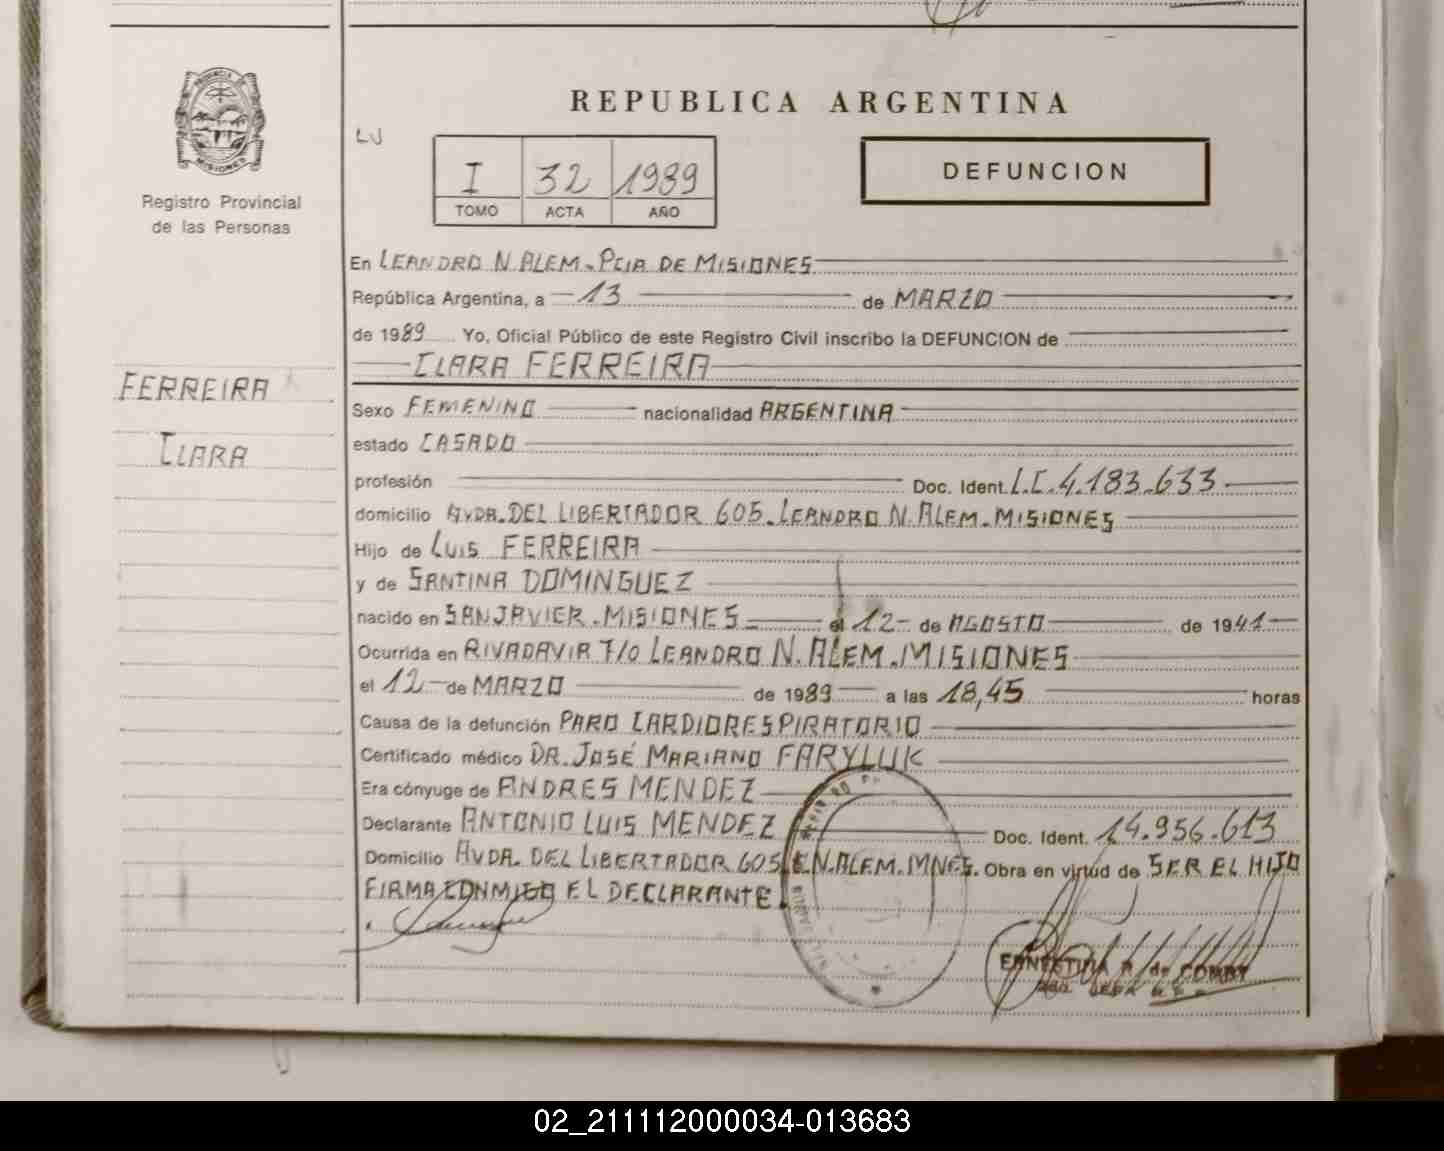 PROVINCIA DE
MISIONES
Registro Provincial
de las Personas
REPUBLICA ARGENTINA
LU
I 32 1989
TOMO ACTA AÑO
DEFUNCION
En LEANDRO N. ALEM - PCIA DE MISIONES
República Argentina, a 13 de MARZO
de 1989 Yo, Oficial Público de este Registro Civil inscribo la DEFUNCION de
CLARA FERREIRA
FERREIRA
CLARA
Sexo FEMENINO nacionalidad ARGENTINA
estado CASADO
profesión Doc. Ident. L.C. 4.183.633
domicilio AVDA. DEL LIBERTADOR 605 - LEANDRO N. ALEM - MISIONES
Hijo de LUIS FERREIRA
y de SANTINA DOMINGUEZ
nacido en SAN JAVIER - MISIONES el 12 de AGOSTO de 1941
Ocurrida en RIVADAVIA 710 LEANDRO N. ALEM - MISIONES
el 12 de MARZO de 1989 a las 18,45 horas
Causa de la defunción PARO CARDIORESPIRATORIO
Certificado médico DR. JOSÉ MARIANO FARYLUK
Era cónyuge de ANDRES MENDEZ
Declarante ANTONIO LUIS MENDEZ Doc. Ident. 14.956.613
Domicilio AVDA. DEL LIBERTADOR 605 L.N. ALEM. MNES. Obra en virtud de SER EL HIJO
FIRMA CONMIGO EL DECLARANTE.
ERNESTINA R. de
02_211112000034-013683